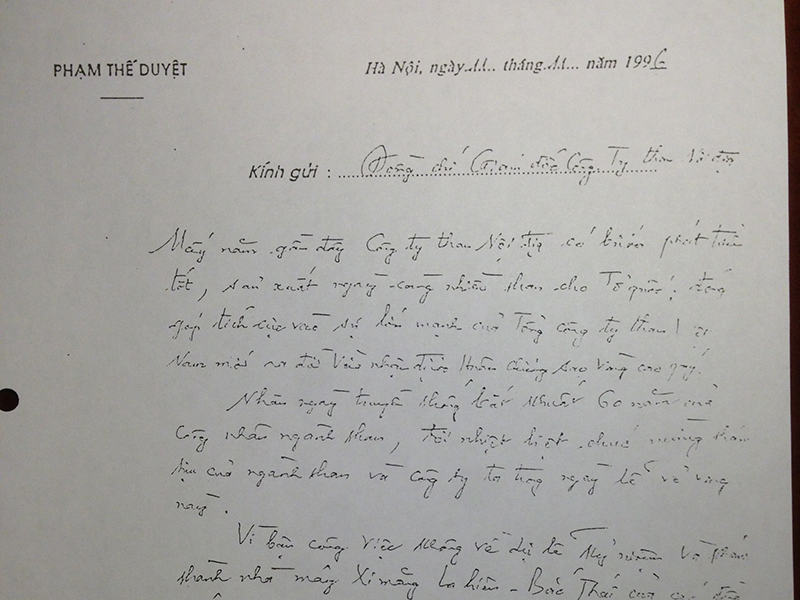 PHẠM THẾ DUYỆT
Hà Nội, ngày 11 tháng 11 năm 1996
Kính gửi : Đồng chí Giám đốc Công Ty than Nội địa
Mấy năm gần đây Công ty than Nội địa có bước phát triển
tốt, sản xuất ngày càng nhiều than cho Tổ quốc, đóng
góp tích cực vào sự lớn mạnh của Tổng công ty than Việt
Nam mới ra đời vừa nhận được Huân chương Sao Vàng cao quý.
Nhân ngày truyền thống bất khuất 60 năm của
công nhân ngành than, tôi nhiệt liệt chúc mừng thân
của ngành than và công ty ta trong ngày lễ vẻ vang
này.
Vì bận công việc không về dự lễ kỷ niệm và khánh
thành nhà máy Xi măng La hiên - Bắc Thái của các đồng